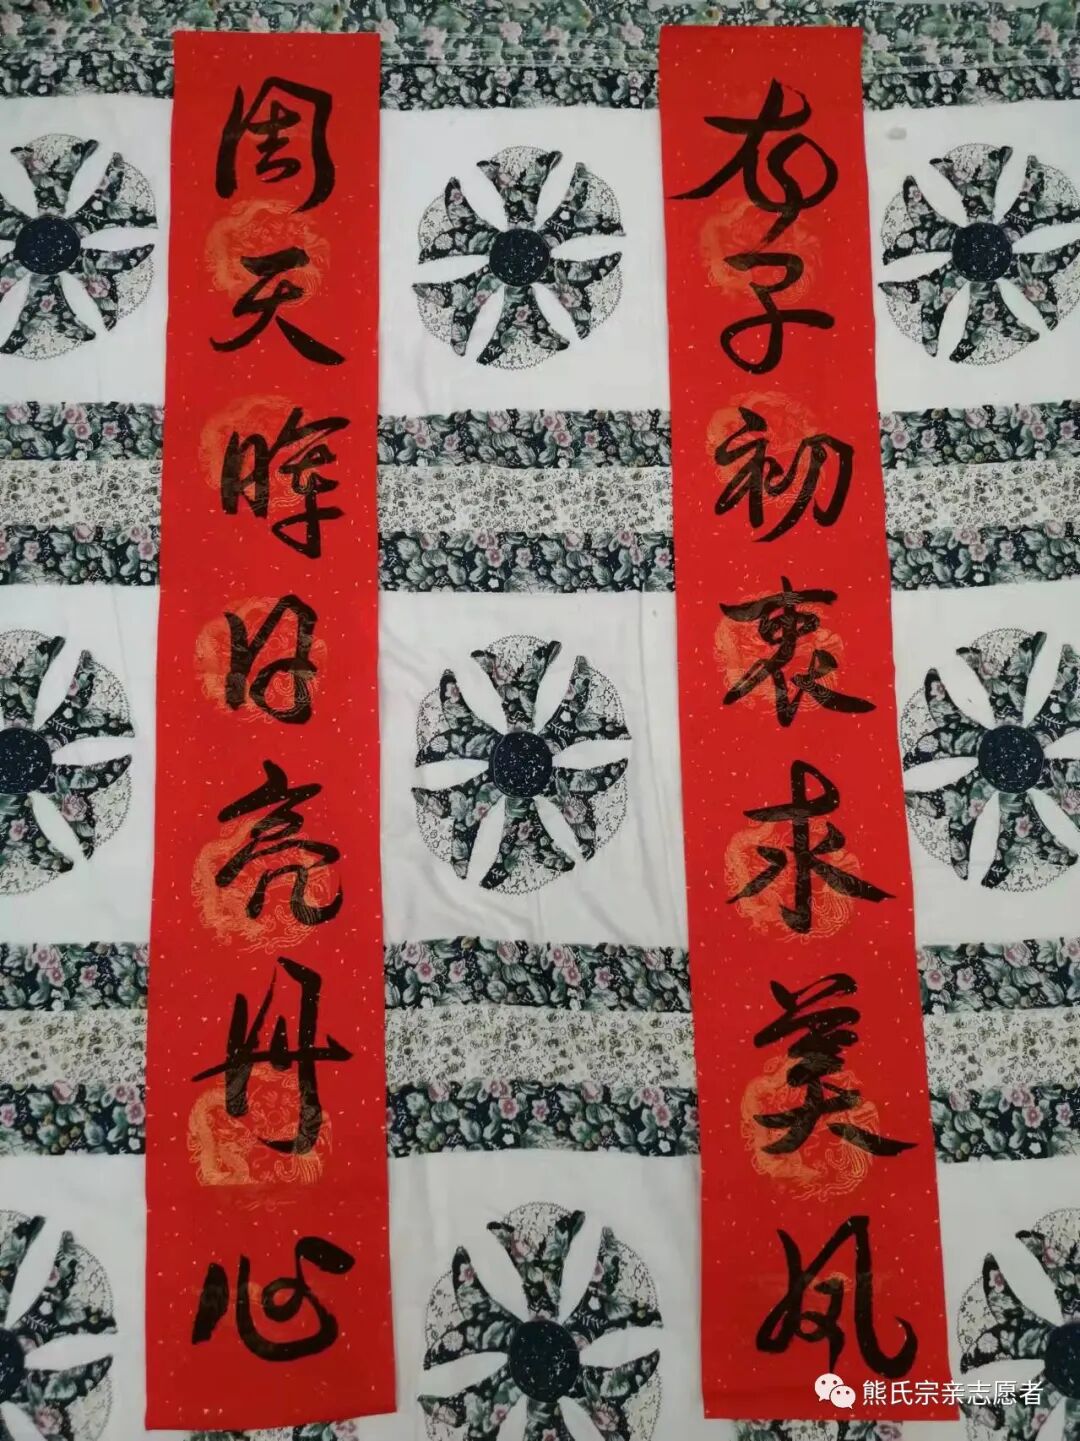 子初衷求美风
周天晖日亮丹心
熊氏宗亲志愿者